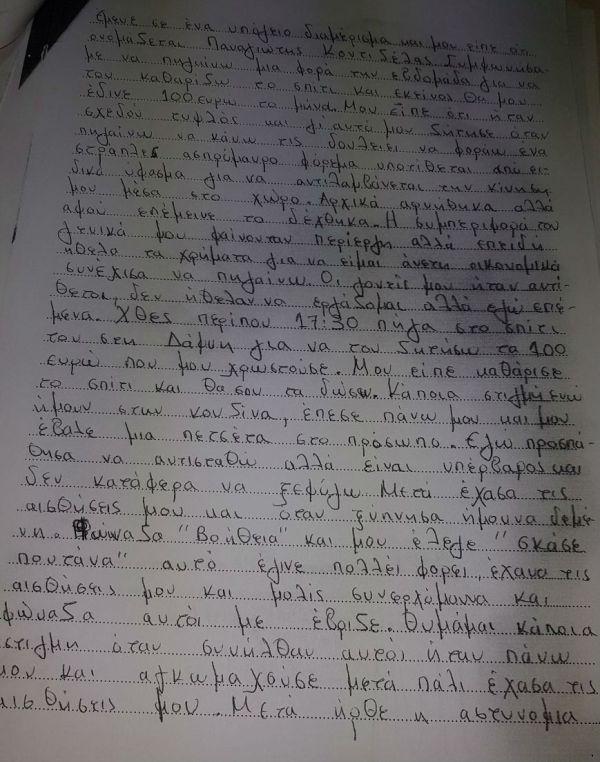 έμενε σε ένα υπόγειο διαμέρισμα και μου είπε ότι
ονομάζεται Παναγιώτης Κοντιδέλας. Συμφωνήσα-
με να πηγαίνω μια φορά την εβδομάδα για να
του καθαρίζω το σπίτι και εκείνος θα μου
έδινε 100 ευρώ το μήνα. Μου είπε ότι ήταν
σχεδόν τυφλός και γι'αυτό μου ζήτησε όταν
πηγαίνω να κάνω τις δουλειεί να φοράω ένα
στράπλες ασπρόμαυρο φόρεμα υποτίθεται από ει-
δικό ύφασμα για να αντιλαμβάνεται την κίνηση
μου μέσα στο χώρο. Αρχικά αρνήθηκα αλλά
αφού επέμεινε το δέχθηκα. Η συμπεριφορά του
γενικά μου φαίνονταν περίεργη αλλά επειδή
ήθελα τα χρήματα για να είμαι άνετη οικονομικά
συνέχισα να πηγαίνω. Οι γονείς μου ήταν αντί-
θετοι, δεν ήθελαν να εργάζομαι αλλά εγώ επέ-
μενα. Χθες περίπου 17:30 πήγα στο σπίτι
του στη Δάφνη για να του ζητήσω τα 100
ευρώ που μου χρωστούσε. Μου είπε καθάρισε
το σπίτι και θα σου τα δώσω. Κάποια στιγμή ενώ
ήμουν στην κουζίνα, έπεσε πάνω μου και μου
έβαλε μια πετσέτα στο πρόσωπο. Εγώ προσπά-
θησα να αντισταθώ αλλά είναι υπέρβαρος και
δεν κατάφερα να ξεφύγω. Μετά έχασα τις
αισθήσεις μου και όταν ξύπνησα ήμουνα δεμέ-
νη. Φώναζα "Βοήθεια" και μου έλεγε "σκάσε
πουτάνα" αυτό έγινε πολλέί φορεί, έχανα τις
αισθήσεις μου και μόλις συνερχόμουνα και
φώναζα αυτόί με έβριζε. Θυμάμαι κάποια
στιγμή όταν συνήλθαν αυτοί ήταν πάνω
μου και αγκωμαχούσε μετά πάλι έχασα τις
αισθήσεις μου. Μετά ήρθε η αστυνομία